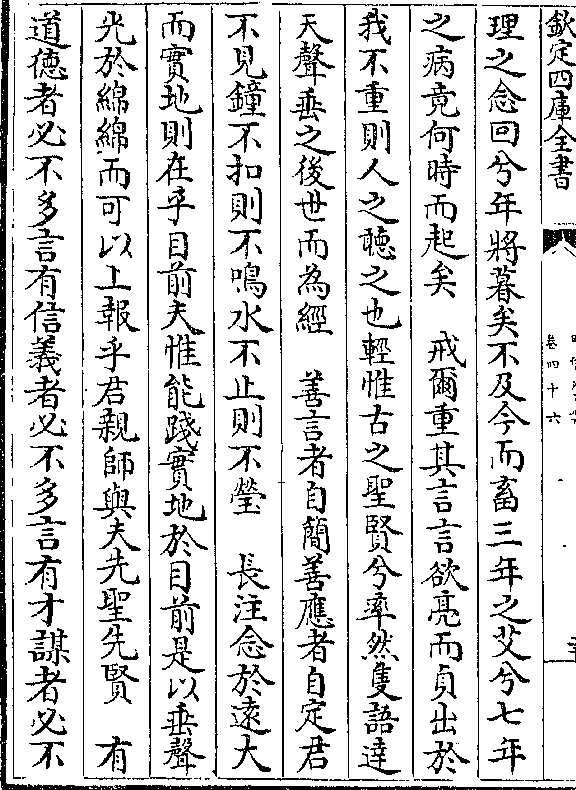 欽定四庫全書
卷四十六
理之念回兮年將暮矣不及今而畜三年之艾兮七年
之病竟何時而起矣　戒爾重其言言欲亮而貞出於
我不重則人之聽之也輕惟古之聖賢兮率然隻語達
天聲垂之後世而為經　善言者自簡善應者自定君
不見鐘不扣則不鳴水不止則不瑩　長注念於遠大
而實地則在乎目前夫惟能踐實地於目前是以垂聲
光於綿綿而可以上報乎君親師與夫先聖先賢　有
道德者必不多言有信義者必不多言有才謀者必不